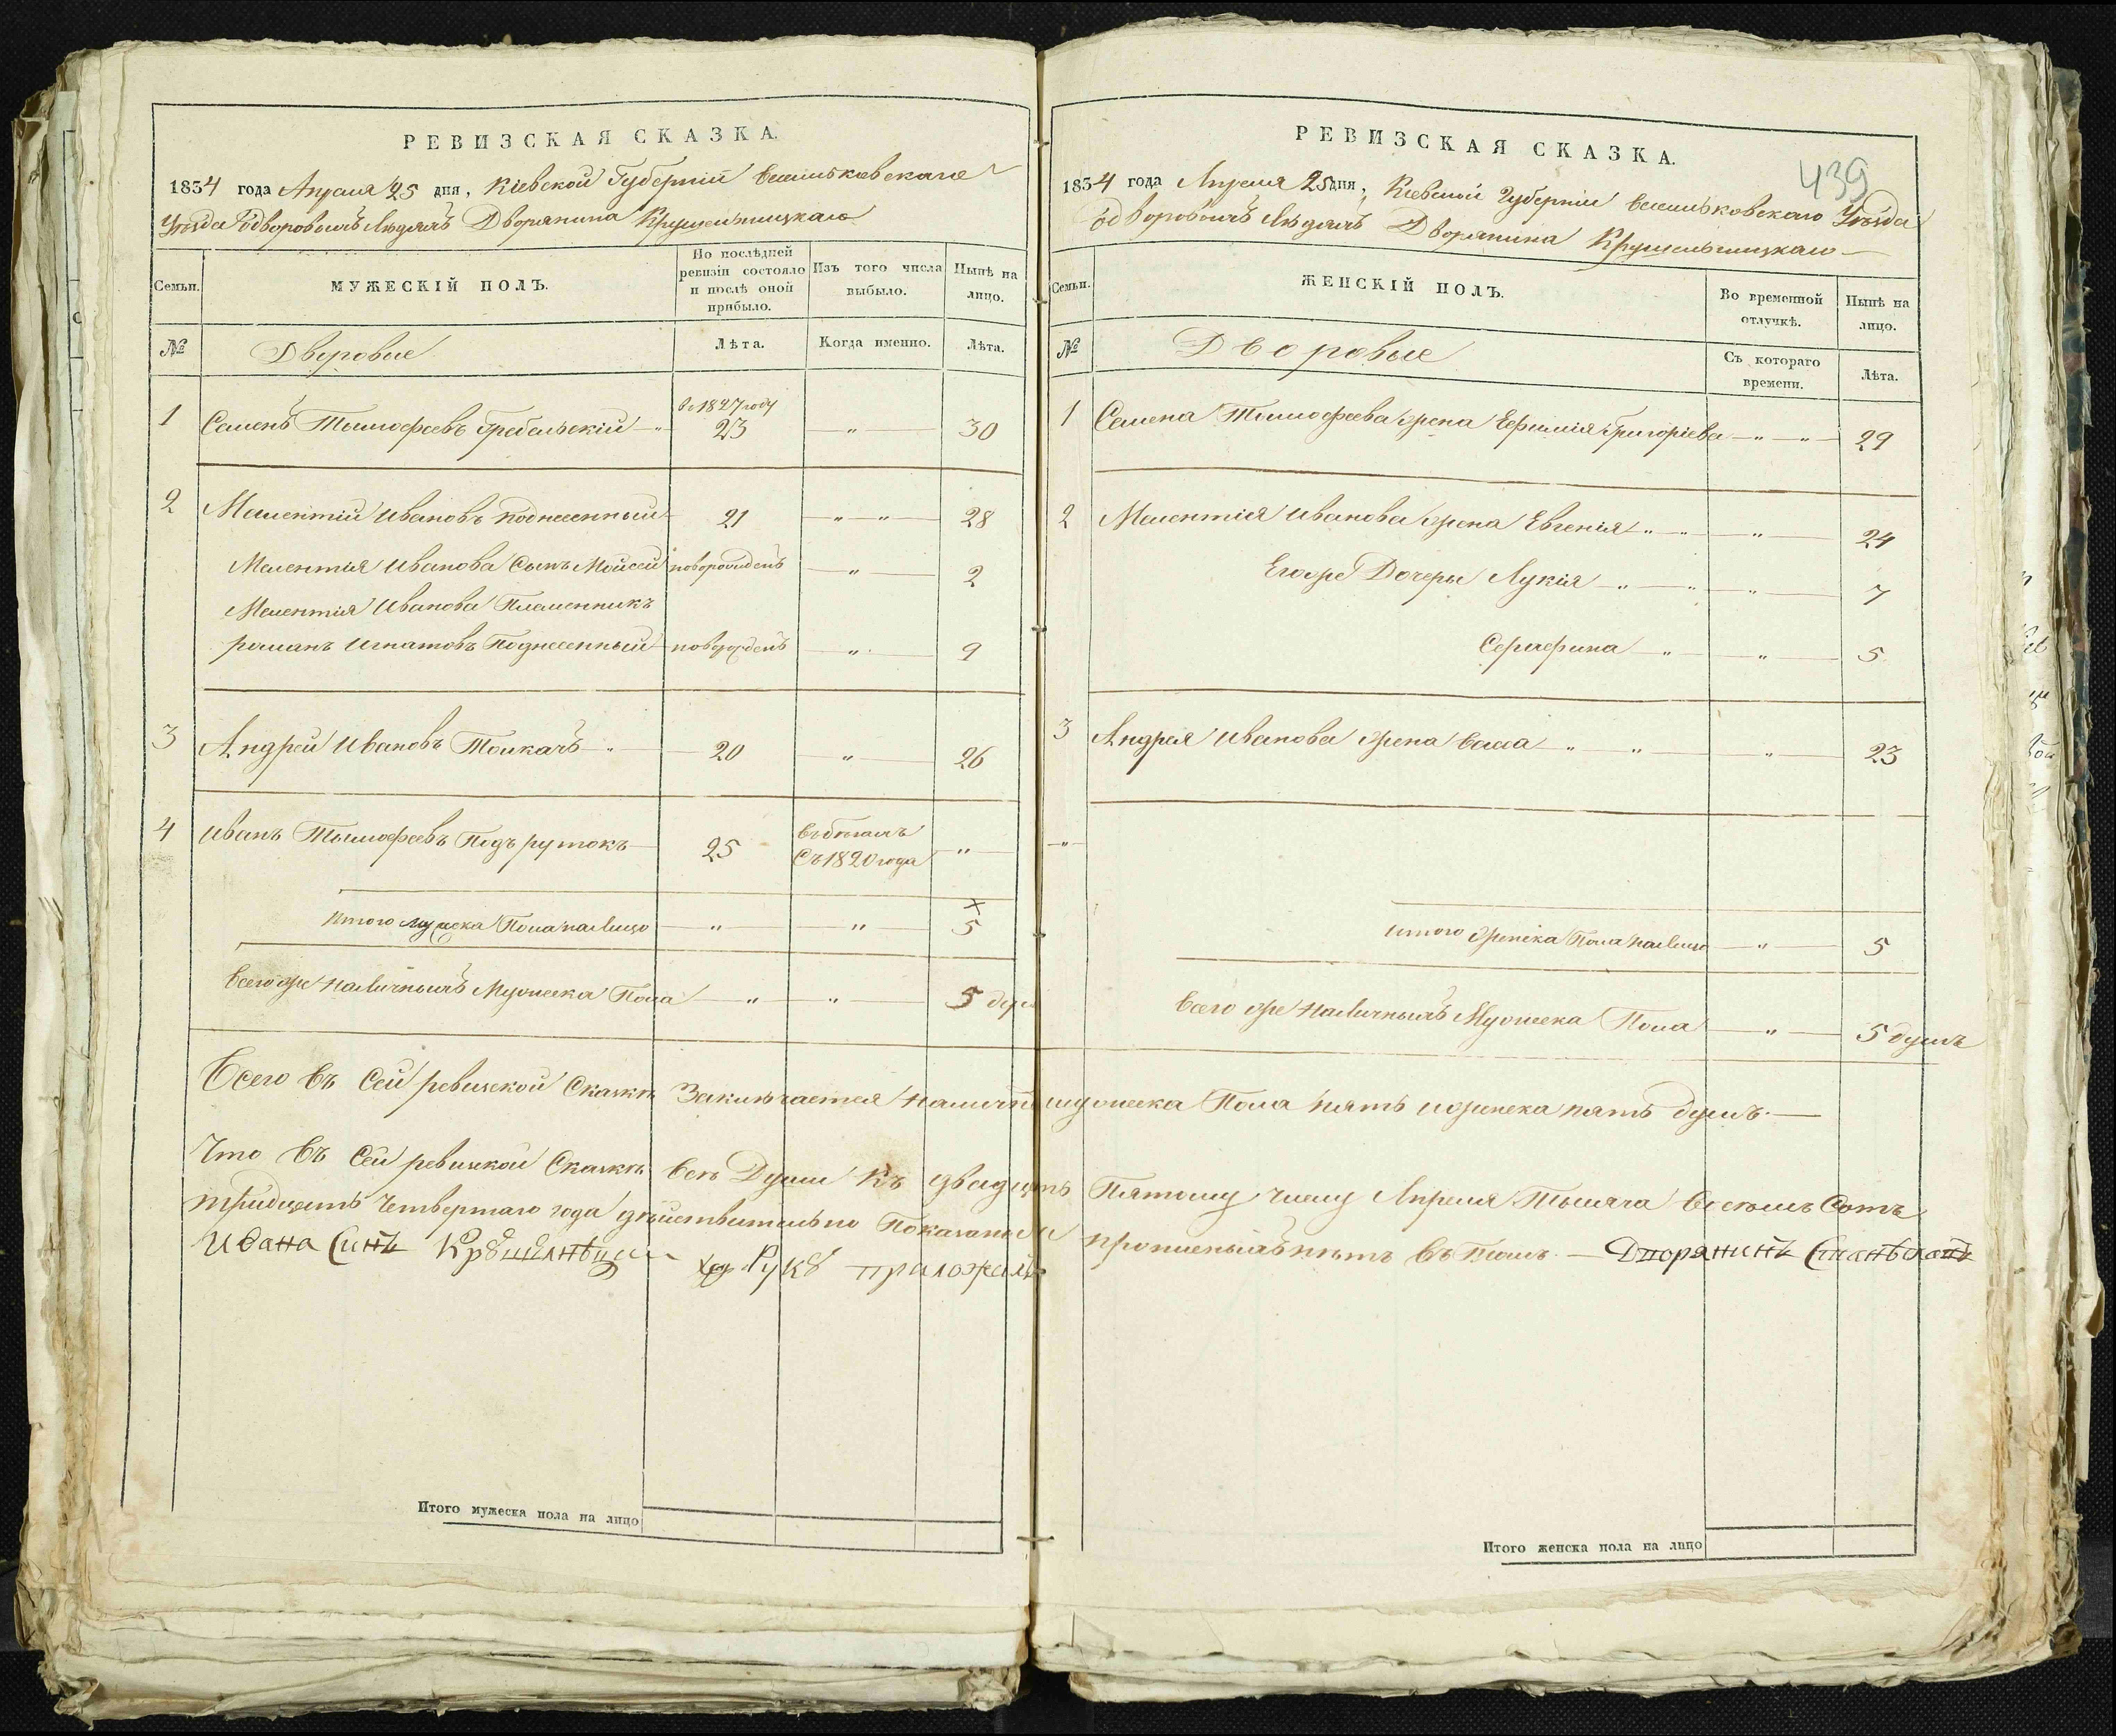 РЕВИЗСКАЯ СКАЗКА.
1834 года Апреля 25 дня, Кіевской Губерніи Васильковскаго
Уѣзда Одворовыхъ Людяхъ Дворянина Крушельницкаго
Семьи. МУЖЕСКІЙ ПОЛЪ. По послѣдней ревизіи состояло и послѣ оной прибыло. Изъ того числа выбыло. Нынѣ на лицо.
№ Дворовые Лѣта. Когда именно. Лѣта.
1 Семенъ Тимофеевъ Гребельскій в 1827 году 23 " 30
2 Мелентій Ивановъ Поднесенный 21 " " 28
Мелентія Иванова Сынъ Мойсей новорожденъ " 2
Мелентія Иванова Племенникъ
романъ Игнатовъ Поднесенный новорожденъ " 9
3 Андрей Ивановъ Толкачъ " 20 " 26
4 Иванъ Тимофеевъ 25 Въ бѣгахъ Съ 1820 года "
Итого мужеска Пола налицо " " 5
Всего же наличныхъ Мужеска Пола " " 5 душ
РЕВИЗСКАЯ СКАЗКА.
439
1834 года Апреля 25 дня, Кіевской Губерніи Васильковскаго Уѣзда
Одворовыхъ Людяхъ Дворянина Крушельницкаго
Семьи. ЖЕНСКІЙ ПОЛЪ. Во временной отлучкѣ. Нынѣ на лицо.
№ Дворовые Съ котораго времени. Лѣта.
1 Семена Тимофеева жена Ефимія Григоріева " " 29
2 Мелентія Иванова жена Евгенія " " " 24
Егоже Дочеры Лукія " " " 7
Серафима " " 5
3 Андрея Иванова жена " " " 23
"
Итого женска Пола налицо " 5
Всего же наличныхъ Мужеска Пола " 5 душъ
Всего въ Сей ревизской Сказкѣ Заключается налично мужеска Пола пять иженска пять душъ.
Что въ Сей ревизской Сказкѣ всѣ Души къ двадцать Пятому числу Апреля Тысяча восемь Сотъ
тридцать Четвертаго года дѣйствительно Показаны и прописныхъ нѣтъ въ Томъ. — Дворянинъ Станѣславъ
Ивана Синъ Крꙋшелнѣцки Рукꙋ приложилъ
Итого мужеска пола на лицо
Итого женска пола на лицо